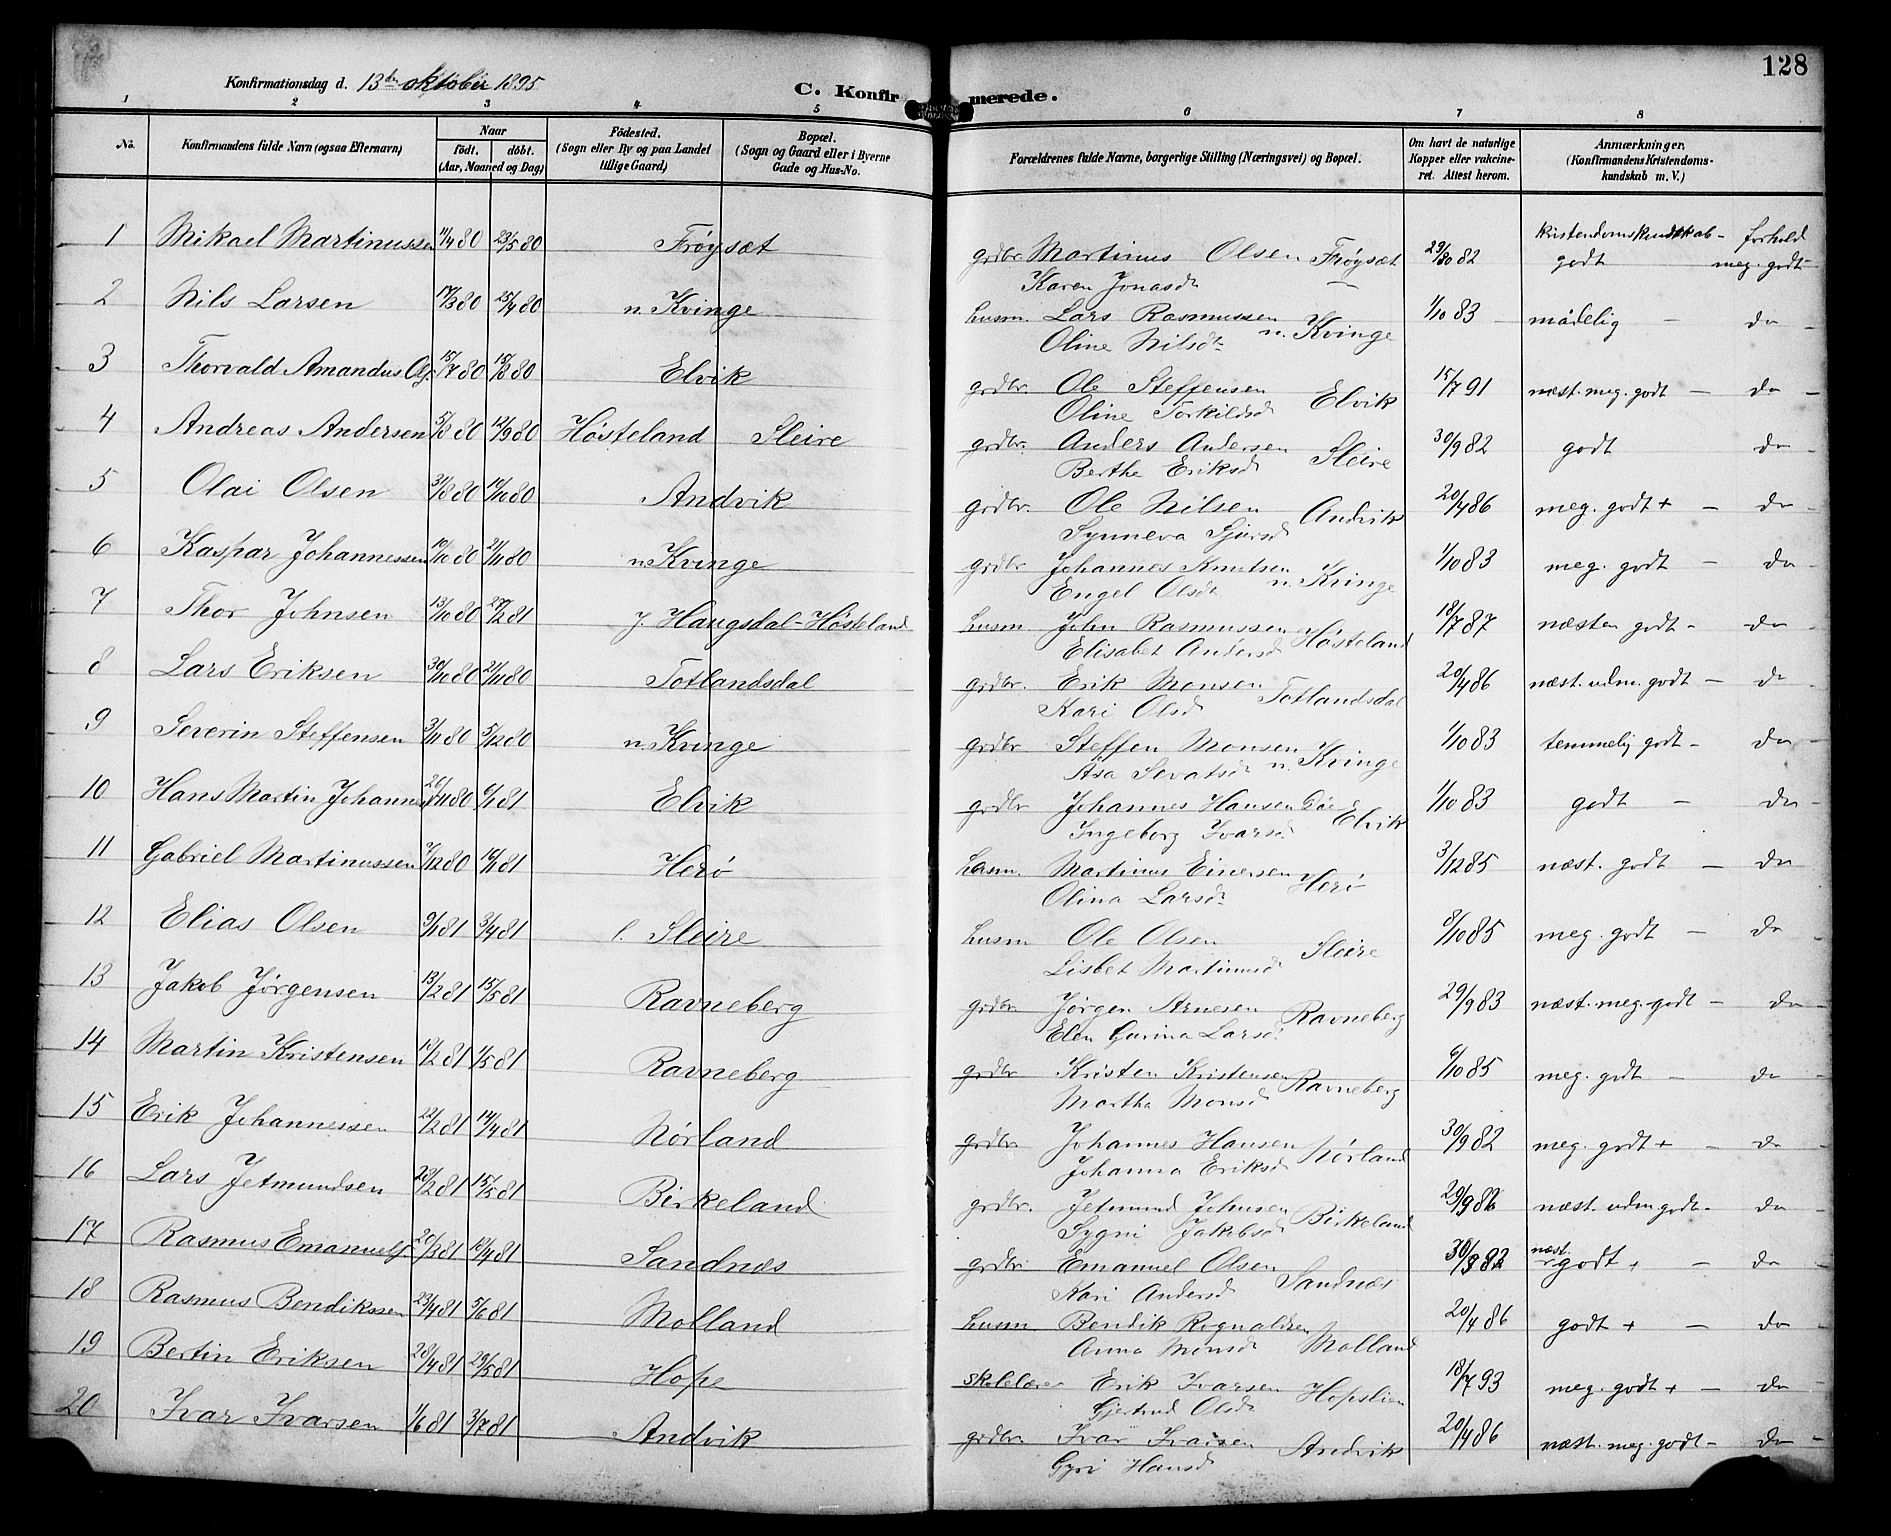 128
Konfirmationsdag d. 13de oktober 1895
C. Konfirmerede.
1 2 3 4 5 6 7 8
No. Konfirmandens fulde Navn (ogsaa Efternavn) Naar födt. döbt. (Aar, Maaned og Dag) Födested. (Sogn eller By og paa Landet tillige Gaard) Bopæl. (Sogn og Gaard eller i Byerne Gade og Hus-No. Forældrenes fulde Navne, borgerlige Stilling (Næringsvei) og Bopæl. Om havt de naturlige Kopper eller vakcineret. Attest herom. Anmærkninger. (Konfirmandens Kristendomskundskab m. V.)
kristendomskundskab - forhold
1 Mikael Martinussen 11/4 80 23/5 80 Frøysæt grdbr. Martinus Olsen Frøysæt 82 godt meg. godt
Karen Jonasdr —
2 Nils Larsen 17/3 80 25/4 80 n. Kvinge husm. Lars Rasmussen n. Kvinge 1/10 83 mådelig - do -
Oline Nilsdr
3 Thorvald Amandus Ols. 15/7 80 15/8 80 Elvik grdbr. Ole Steffensen Elvik 15/7 91 næst. meg. godt - do -
Oline Torkildsd
4 Andreas Andersen 5/8 80 12/9 80 Høsteland Sleire grdbr. Anders Andersen Sleire 30/9 82 godt do -
Berthe Eriksd
5 Olai Olsen 31/8 80 14/10 80 Andvik grdbr. Ole Nilsen Andvik 20/4 86 meg. godt + - do -
Synneva Sjursd
6 Kaspar Johannessen 10/10 80 21/11 80 n. Kvinge grdbr Johannes Knutsen n. Kvinge 1/10 83 meg. godt - do
Engel Olsd
7 Thor Johnsen 13/10 80 27/2 81 y Haugsdal - Høsteland husm John Rasmussen Høsteland 18/7 87 næsten godt - do -
Elisabet Andersd
8 Lars Eriksen 30/10 80 21/11 80 Totlandsdal grdbr. Erik Monsen Totlandsdal 20/4 86 næst. udm. godt - do -
Kari Olsd
9 Severin Steffensen 3/11 80 5/12 80 n. Kvinge grdbr Steffen Monsen n. Kvinge 1/10 83 temmelig godt - do -
Åsa Sevatsd
10 Hans Martin Johannes 80 6/1 81 Elvik grdbr Johannes Hansen Elvik 1/10 83 godt - do -
Ingeborg Ivarsd
11 Gabriel Martinussen 7/12 80 16/1 81 Herø husm. Martinus Einersen Herø 3/12 85 næst. godt - do
Olina Larsdr
12 Elias Olsen 9/1 81 3/4 81 l. Sleire husm Ole Olsen Sleire 8/10 85 meg. godt - do -
Lisbet Martinusd
13 Jakob Jørgensen 13/2 81 15/5 81 Ravneberg grdbr. Jørgen Arnesen Ravneberg 29/9 83 næst. meg. godt - do -
Elen Gurina Larsd
14 Martin Kristensen 81 1/5 81 Ravneberg grdbr Kristen Kristensen Ravneberg 6/10 85 meg. godt - do -
Martha Monsd
15 Erik Johannessen 22/2 81 14/4 81 Nørland grdbr. Johannes Hansen Nørland 30/9 82 meg. godt + - do -
Johanna Eriksd
16 Lars Jetmundsen 81 15/5 81 Birkeland grdbr. Jetmund Johnsen Birkeland 29/9 86 næst. udm godt - do -
Sygni Jakobsd
17 Rasmus Emanuels. 20/3 81 81 Sandnæs grdbr. Emanuel Olsen Sandnæs 82 næst godt + - do -
Kari Andersd
18 Rasmus Bendikssen 23/4 81 5/6 81 Molland husm. Bendik Rognaldsen Molland 20/4 86 godt + - do -
Anna Monsd
19 Bertin Eriksen 28/4 81 29/5 81 Hope skolelærer Erik Ivarsen Hopslien 18/7 93 meg. godt + - do -
Gjertrud Olsd
20 Ivar Ivarsen 1/6 81 3/7 81 Andvik grdbr. Ivar Ivarsen Andvik 20/4 86 næst. meg. godt - do -
Gyri Hansd